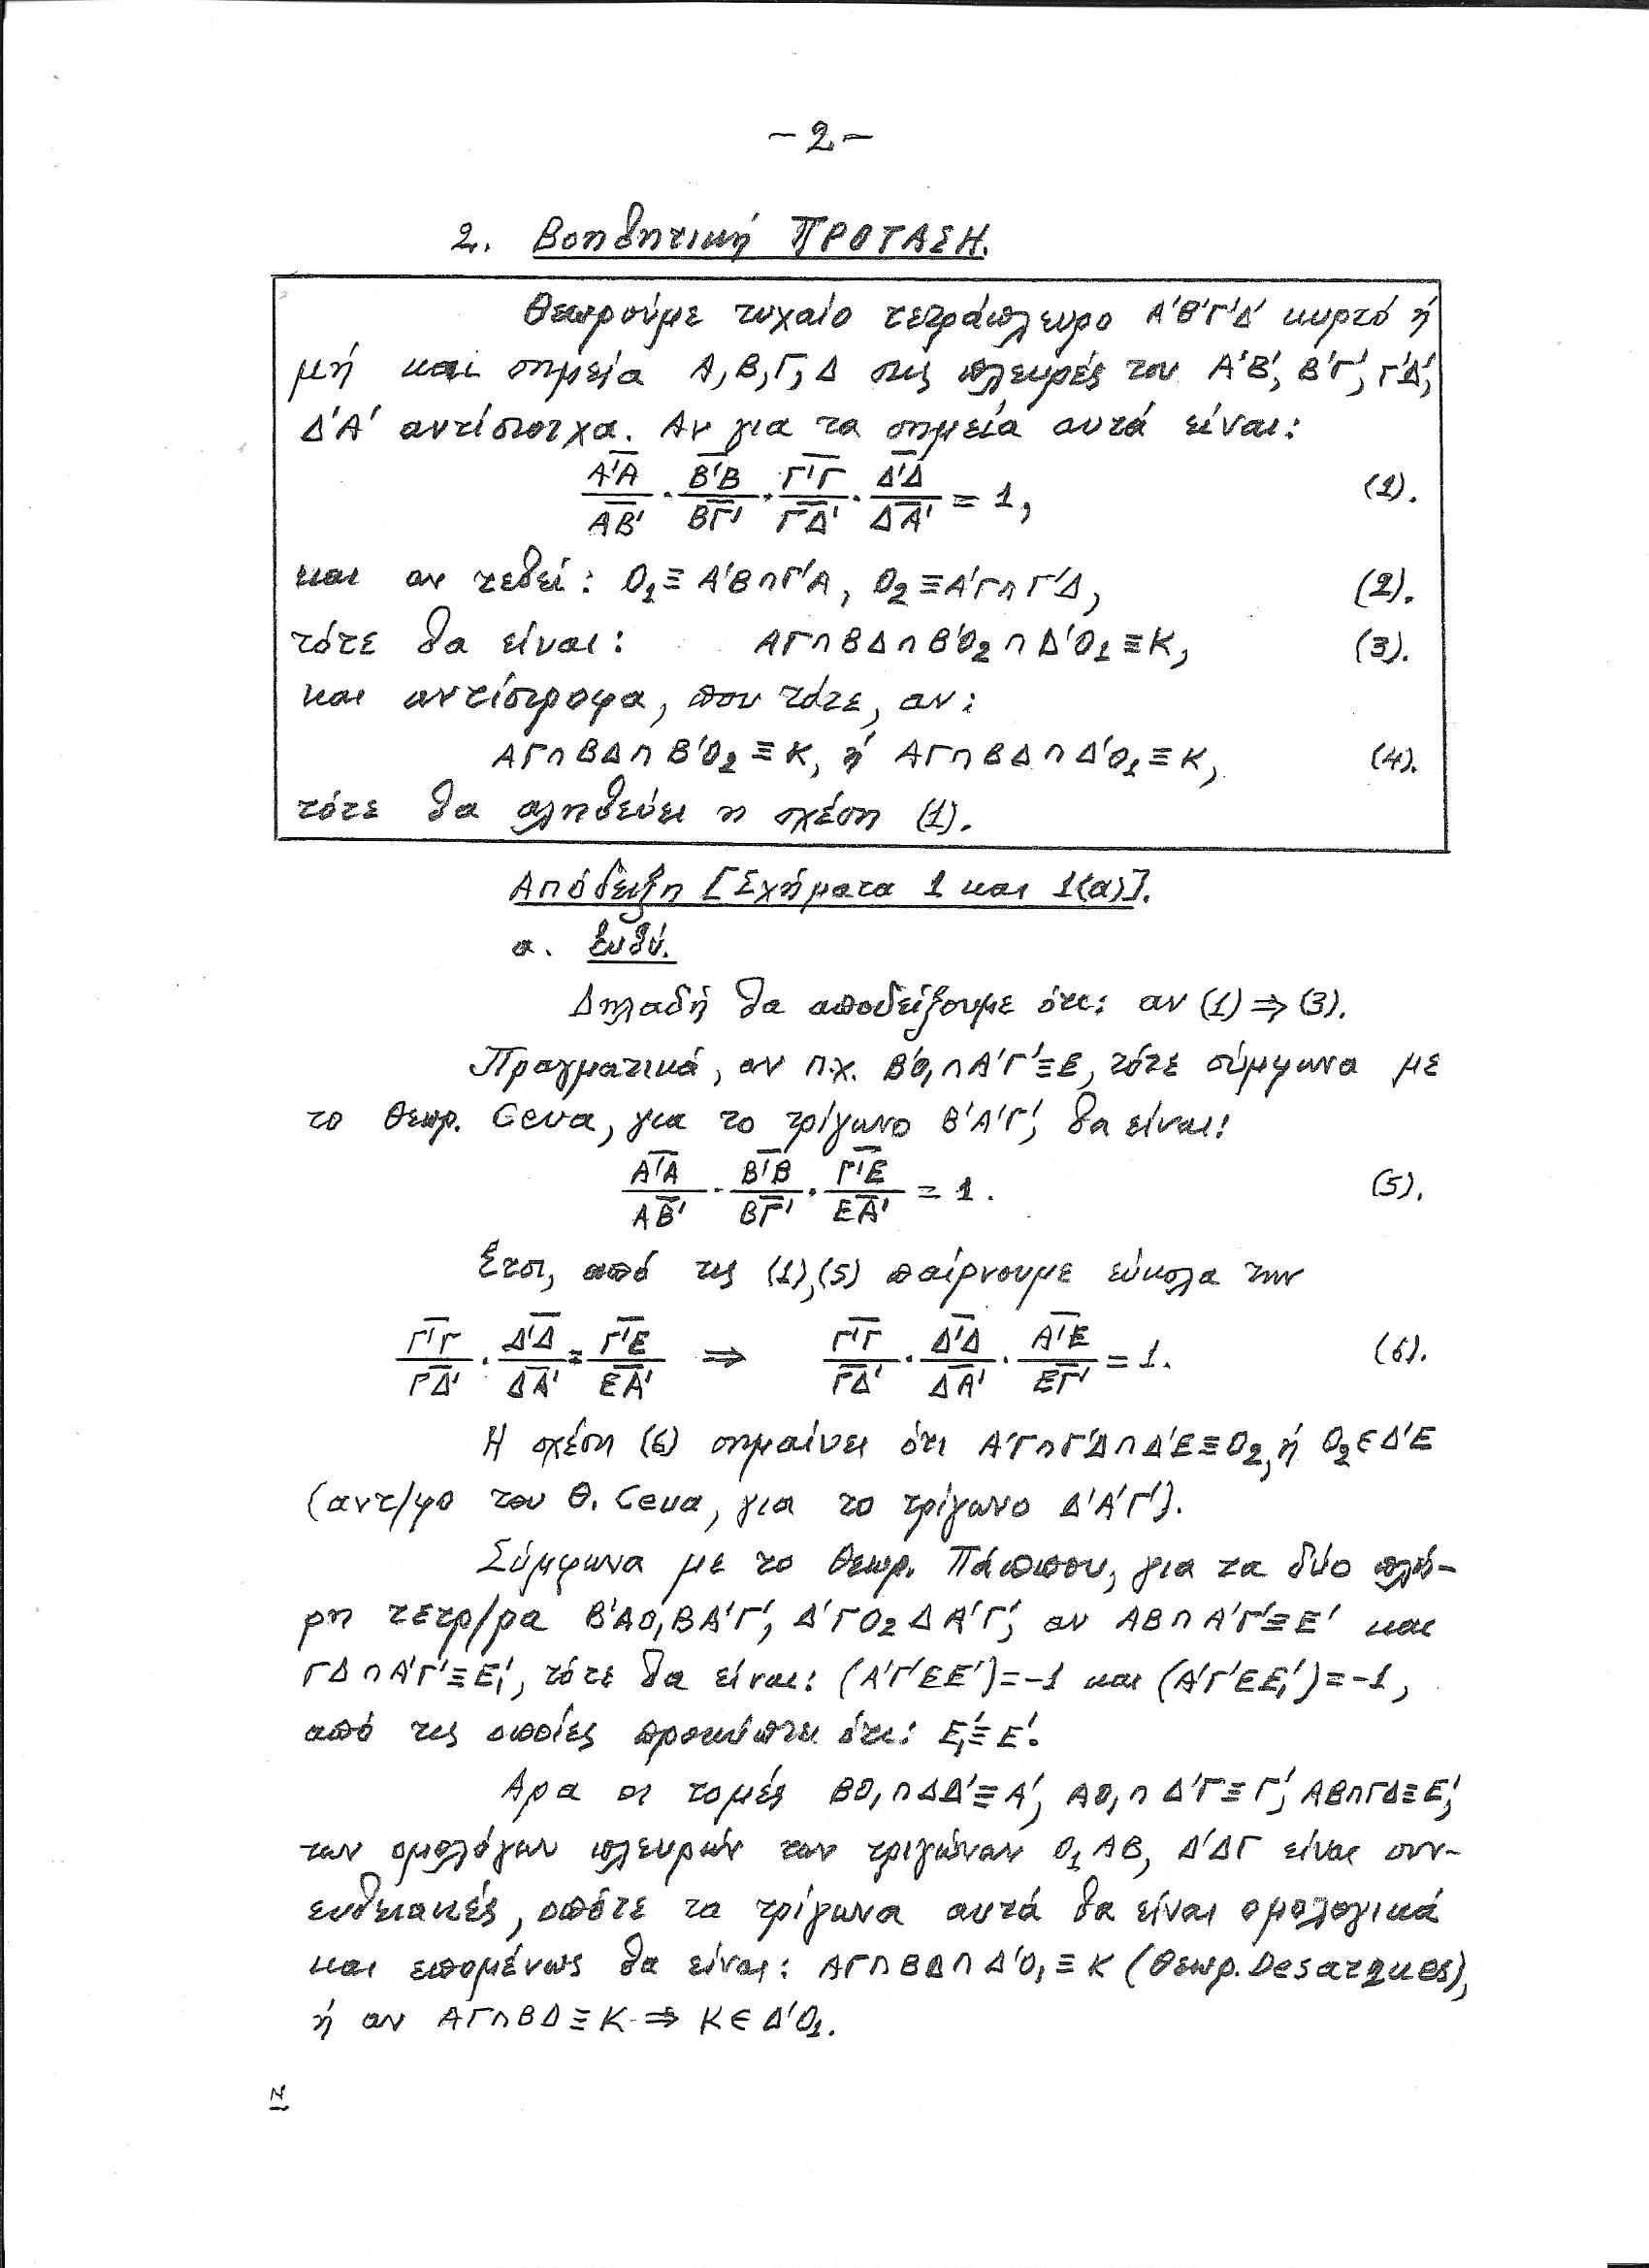 -2-
2. Βοηθητική ΠΡΟΤΑΣΗ.
Θεωρούμε τυχαίο τετράπλευρο Α'Β'Γ'Δ' κυρτό ή
μή και σημεία Α,Β,Γ,Δ στις πλευρές του Α'Β', Β'Γ', Γ'Δ',
Δ'Α' αντίστοιχα. Αν για τα σημεία αυτά είναι:
\frac{\overline{Α'Α}}{\overline{ΑΒ'}} \cdot \frac{\overline{Β'Β}}{\overline{ΒΓ'}} \cdot \frac{\overline{Γ'Γ}}{\overline{ΓΔ'}} \cdot \frac{\overline{Δ'Δ}}{\overline{ΔΑ'}} = 1, (1).
και αν τεθεί: Ο₁≡Α'Β∩Γ'Α, Ο₂≡Α'Γ∩Γ'Δ, (2).
τότε θα είναι: ΑΓ∩ΒΔ∩Β'Ο₂∩Δ'Ο₁≡Κ, (3).
και αντίστροφα, που τότε, αν:
ΑΓ∩ΒΔ∩Β'Ο₂≡Κ, ή ΑΓ∩ΒΔ∩Δ'Ο₁≡Κ, (4).
τότε θα αληθεύει η σχέση (1).
Απόδειξη [Σχήματα 1 και 1(α)].
α. Ευθύ.
Δηλαδή θα αποδείξουμε ότι: αν (1)⇒(3).
Πραγματικά, αν π.χ. Β'Ο₁∩Α'Γ'≡Ε, τότε σύμφωνα με
το θεωρ. Ceva, για το τρίγωνο Β'Α'Γ', θα είναι:
\frac{\overline{Α'Α}}{\overline{ΑΒ'}} \cdot \frac{\overline{Β'Β}}{\overline{ΒΓ'}} \cdot \frac{\overline{Γ'Ε}}{\overline{ΕΑ'}} = 1. (5).
Έτσι, από τις (1),(5) παίρνουμε εύκολα την
\frac{\overline{Γ'Γ}}{\overline{ΓΔ'}} \cdot \frac{\overline{Δ'Δ}}{\overline{ΔΑ'}} = \frac{\overline{Γ'Ε}}{\overline{ΕΑ'}} ⇒ \frac{\overline{Γ'Γ}}{\overline{ΓΔ'}} \cdot \frac{\overline{Δ'Δ}}{\overline{ΔΑ'}} \cdot \frac{\overline{Α'Ε}}{\overline{ΕΓ'}} = 1. (6).
Η σχέση (6) σημαίνει ότι Α'Γ∩Γ'Δ∩Δ'Ε≡Ο₂, ή Ο₂∈Δ'Ε
(αντ/φο του Θ. Ceva, για το τρίγωνο Δ'Α'Γ').
Σύμφωνα με το θεωρ. Πάππου, για τα δύο πλή-
ρη τετρ/ρα Β'ΑΟ₁ΒΑ'Γ', Δ'ΓΟ₂ΔΑ'Γ', αν ΑΒ∩Α'Γ'≡Ε' και
ΓΔ∩Α'Γ'≡Ε₁', τότε θα είναι: (Α'Γ'ΕΕ')=-1 και (Α'Γ'ΕΕ₁')=-1,
από τις οποίες προκύπτει ότι: Ε₁'≡Ε'.
Αρα οι τομές ΒΟ₁∩ΔΔ'≡Α', ΑΟ₁∩Δ'Γ≡Γ', ΑΒ∩ΓΔ≡Ε',
των ομολόγων πλευρών των τριγώνων Ο₁ΑΒ, Δ'ΔΓ είναι συν-
ευθειακές, οπότε τα τρίγωνα αυτά θα είναι ομολογικά
και επομένως θα είναι: ΑΓ∩ΒΔ∩Δ'Ο₁≡Κ (θεωρ. Desarques),
ή αν ΑΓ∩ΒΔ≡Κ ⇒ Κ∈Δ'Ο₁.
N